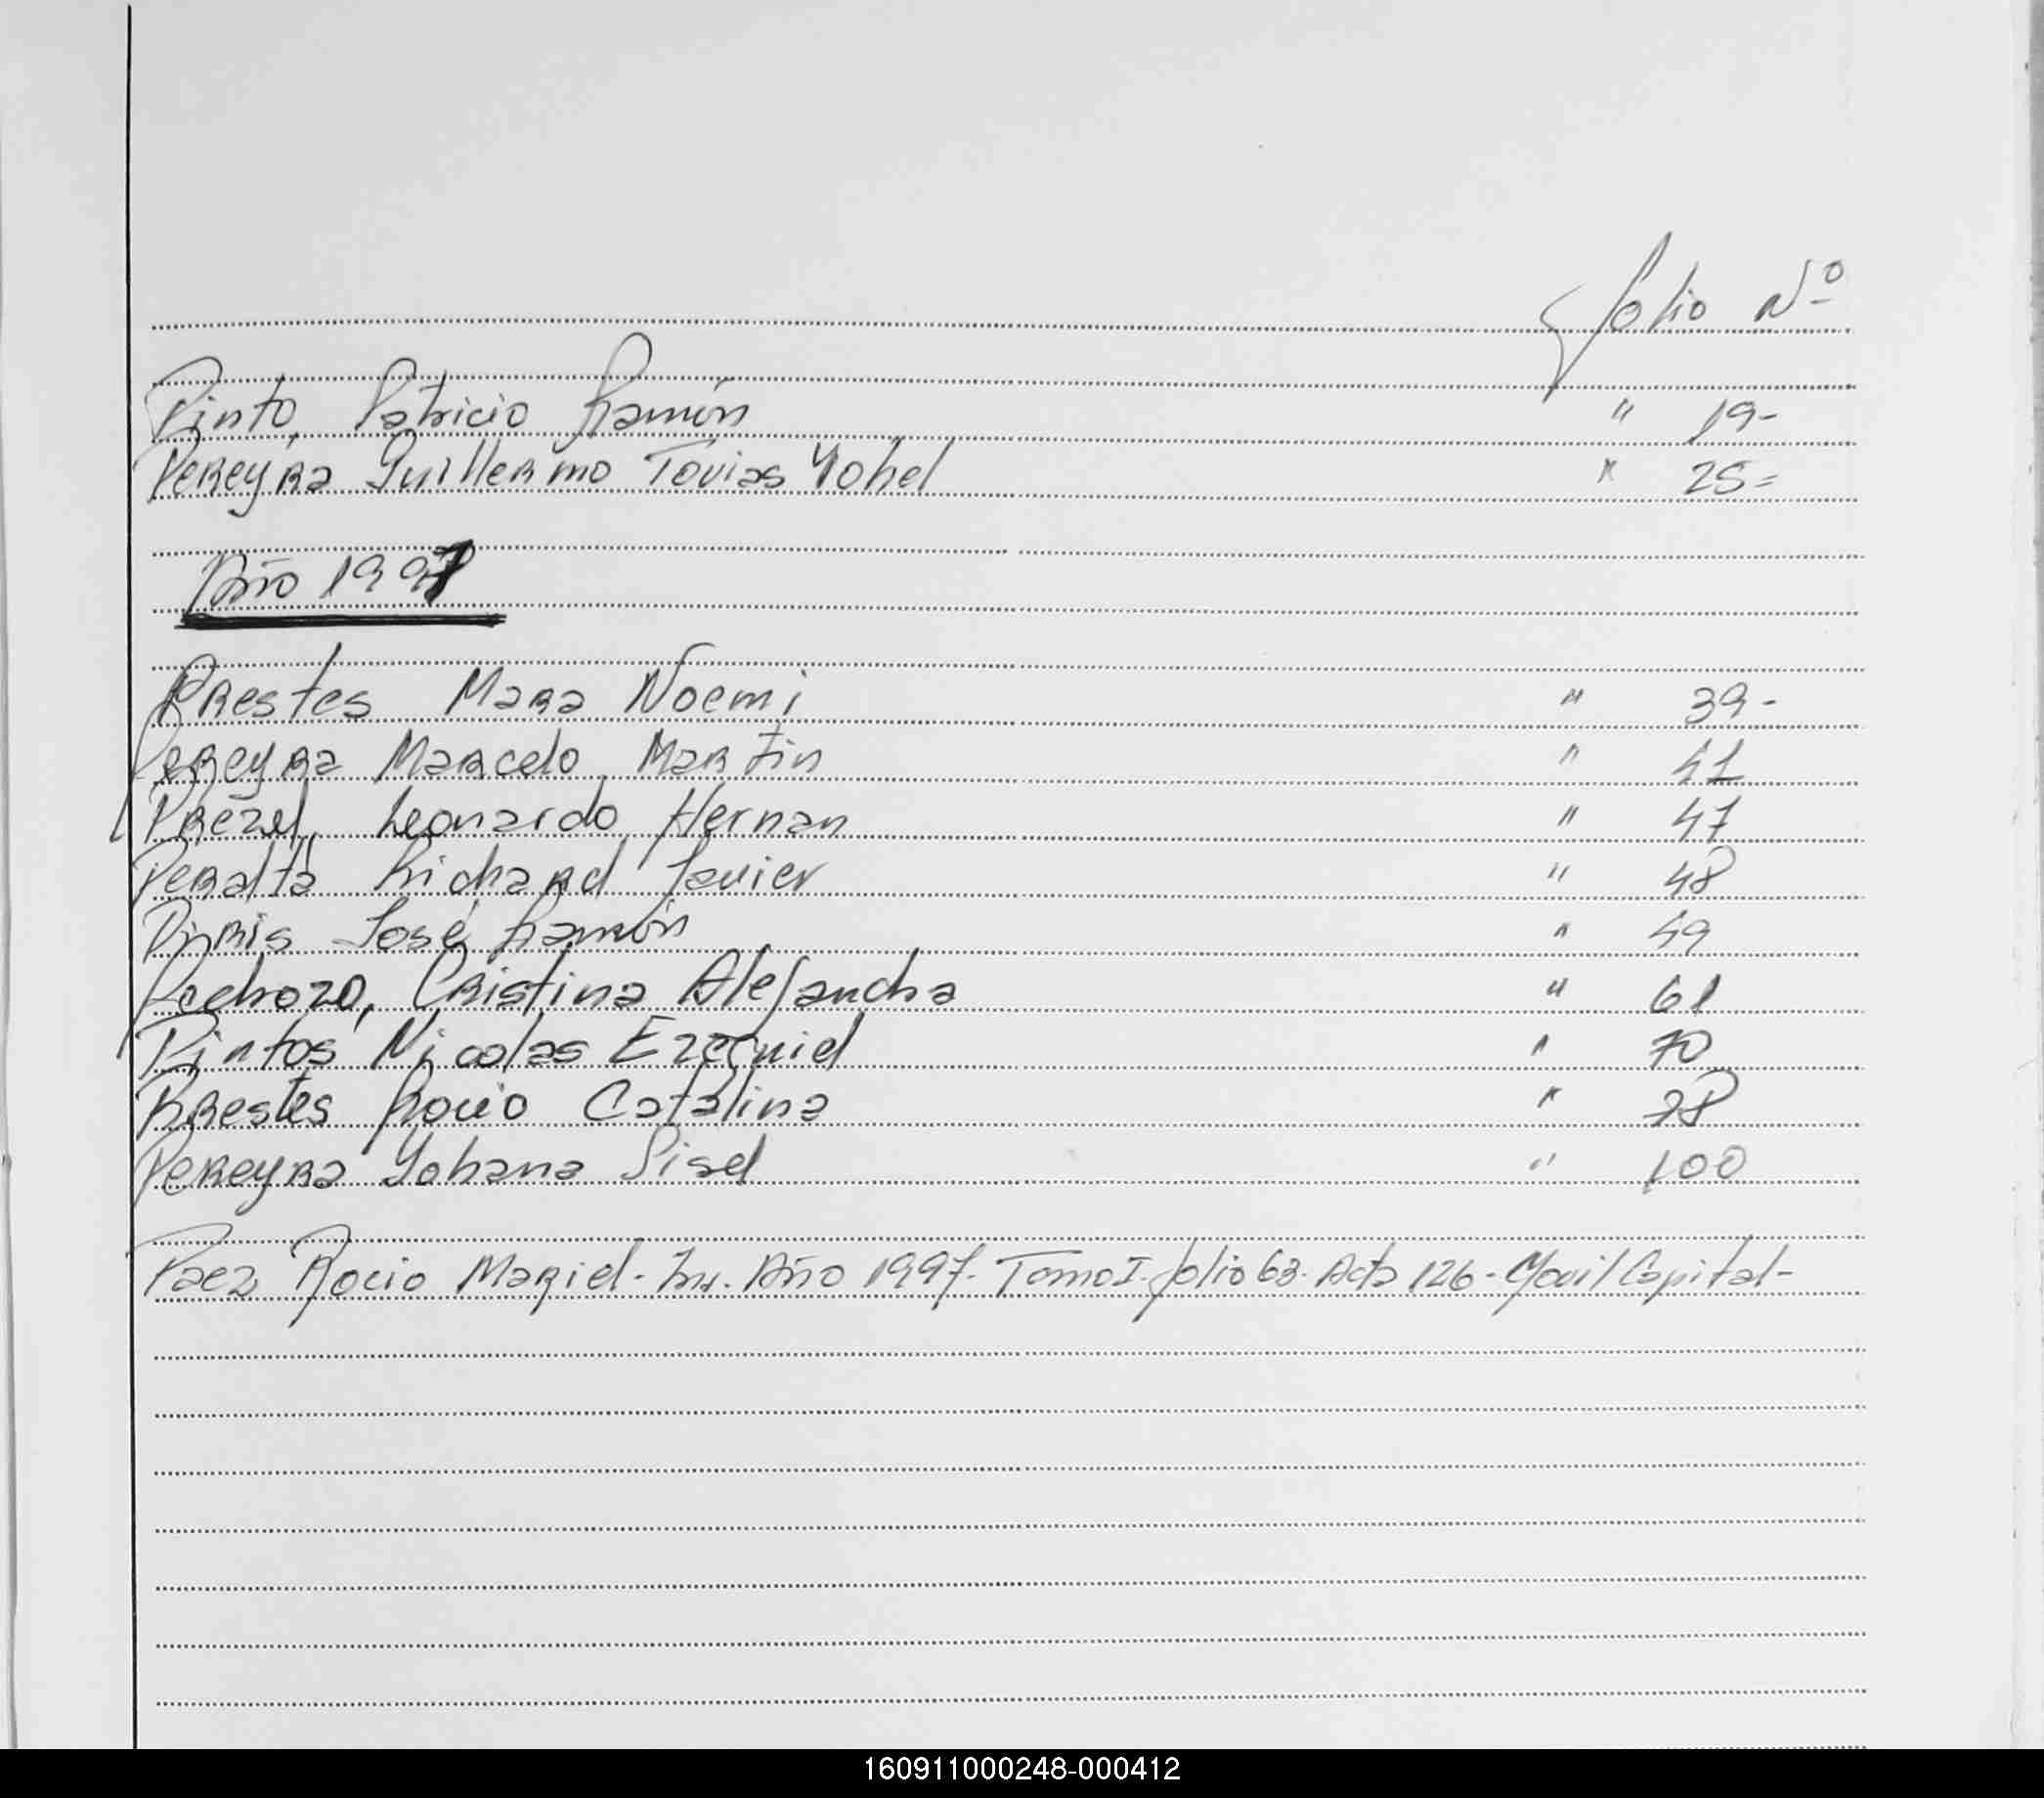 Folio Nº
Pinto, Patricio Ramón " 19-
Pereyra Guillermo Tovias Yohel " 25=
Año 1997
Prestes Mara Noemi " 39-
Pereyra Marcelo Martin " 41
Prezel, Leonardo Hernan " 47
Peralta Richard Javier " 48
Piris José Ramón " 49
Pedrozo, Cristina Alejandra " 61
Pintos Nicolas Ezequiel " 70
Prestes Rocio Catalina " 78
Pereyra Yohana Gisel " 100
Paez Rocio Mariel- Ins. Año 1997- Tomo I. folio 63. Acta 126- Movil Capital-
160911000248-000412